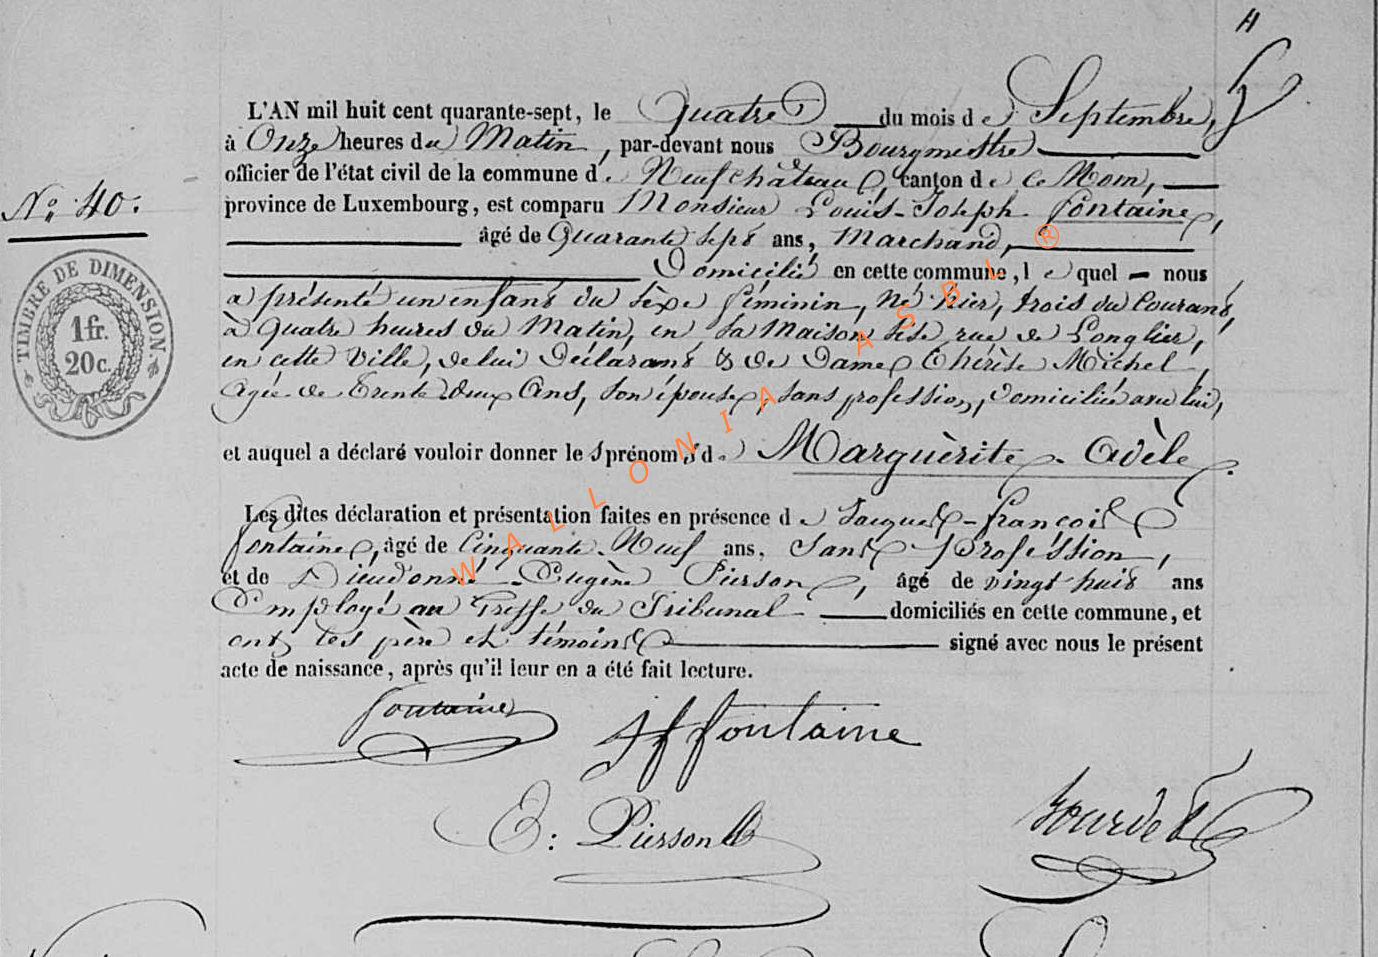 H
L'AN mil huit cent quarante-sept, le Quatre du mois de Septembre,
à Onze heures du Matin, par-devant nous Bourgmestre
officier de l'état civil de la commune de Neufchâteau, canton de ce Nom,
N° 40.
province de Luxembourg, est comparu Monsieur Louis-Joseph Fontaine,
âgé de Quarante sept ans, Marchand,
Domicilié en cette commune, lequel nous
a présenté un enfant du sèxe féminin, né hier, trois du Courant,
à quatre heures du Matin, en sa Maison sise rue de Longlier,
en cette Ville, de lui Déclarant & de Dame Thérèse Michel,
Agée de Trente deux Ans, son épouse, sans profession, domiciliée avec lui,
et auquel a déclaré vouloir donner les prénoms de Marguèrite Adèle.
Les dites déclaration et présentation faites en présence de Jacques-François
Fontaine, âgé de Cinquante-Neuf ans, Sans Profession,
et de Dieudonné Eugène Pierson, âgé de vingt huit ans
Employé au Greffe du Tribunal domiciliés en cette commune, et
ont les père et témoins signé avec nous le présent
acte de naissance, après qu'il leur en a été fait lecture.
TIMBRE DE DIMENSION.
1 fr.
20 c.
Fontaine
JF fontaine
E: Pierson
Bourdet
WALLONIA ASBL ®